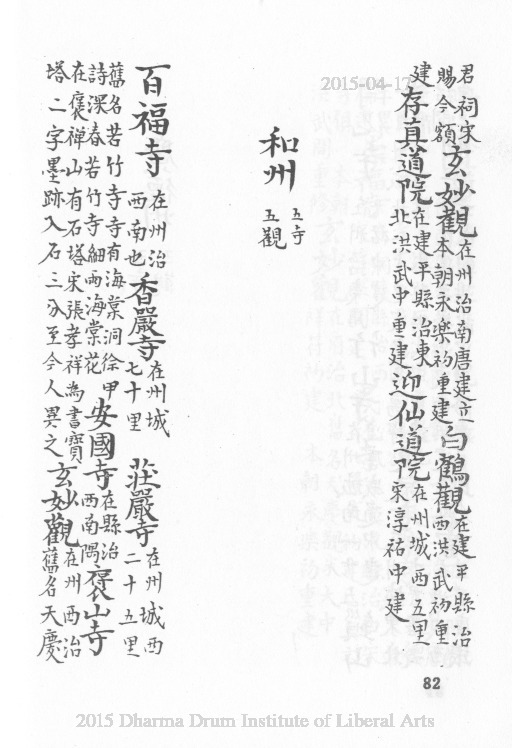 2015-04-17
君祠宋
賜今額
玄妙觀
在州治南唐建立
本朝永樂初重建
白鶴觀
在建平縣治
西洪武初重
建
存真道院
在建平縣治東
北洪武中重建
迎仙道院
在州城西五里
宋淳祐中建
和州
五寺
五觀
百福寺
在州治
西南也
香嚴寺
在州城
七十里
莊嚴寺
在州城西
二十五里
舊名若竹寺寺有海棠洞徐甲
詩深春若竹寺細雨海棠花
安國寺
在縣治
西南隅
褒山寺
在褒禪山有石塔宋張孝祥為書寶
塔二字墨跡入石三分至今人異之
玄妙觀
在州西治
舊名天慶
82
2015 Dharma Drum Institute of Liberal Arts